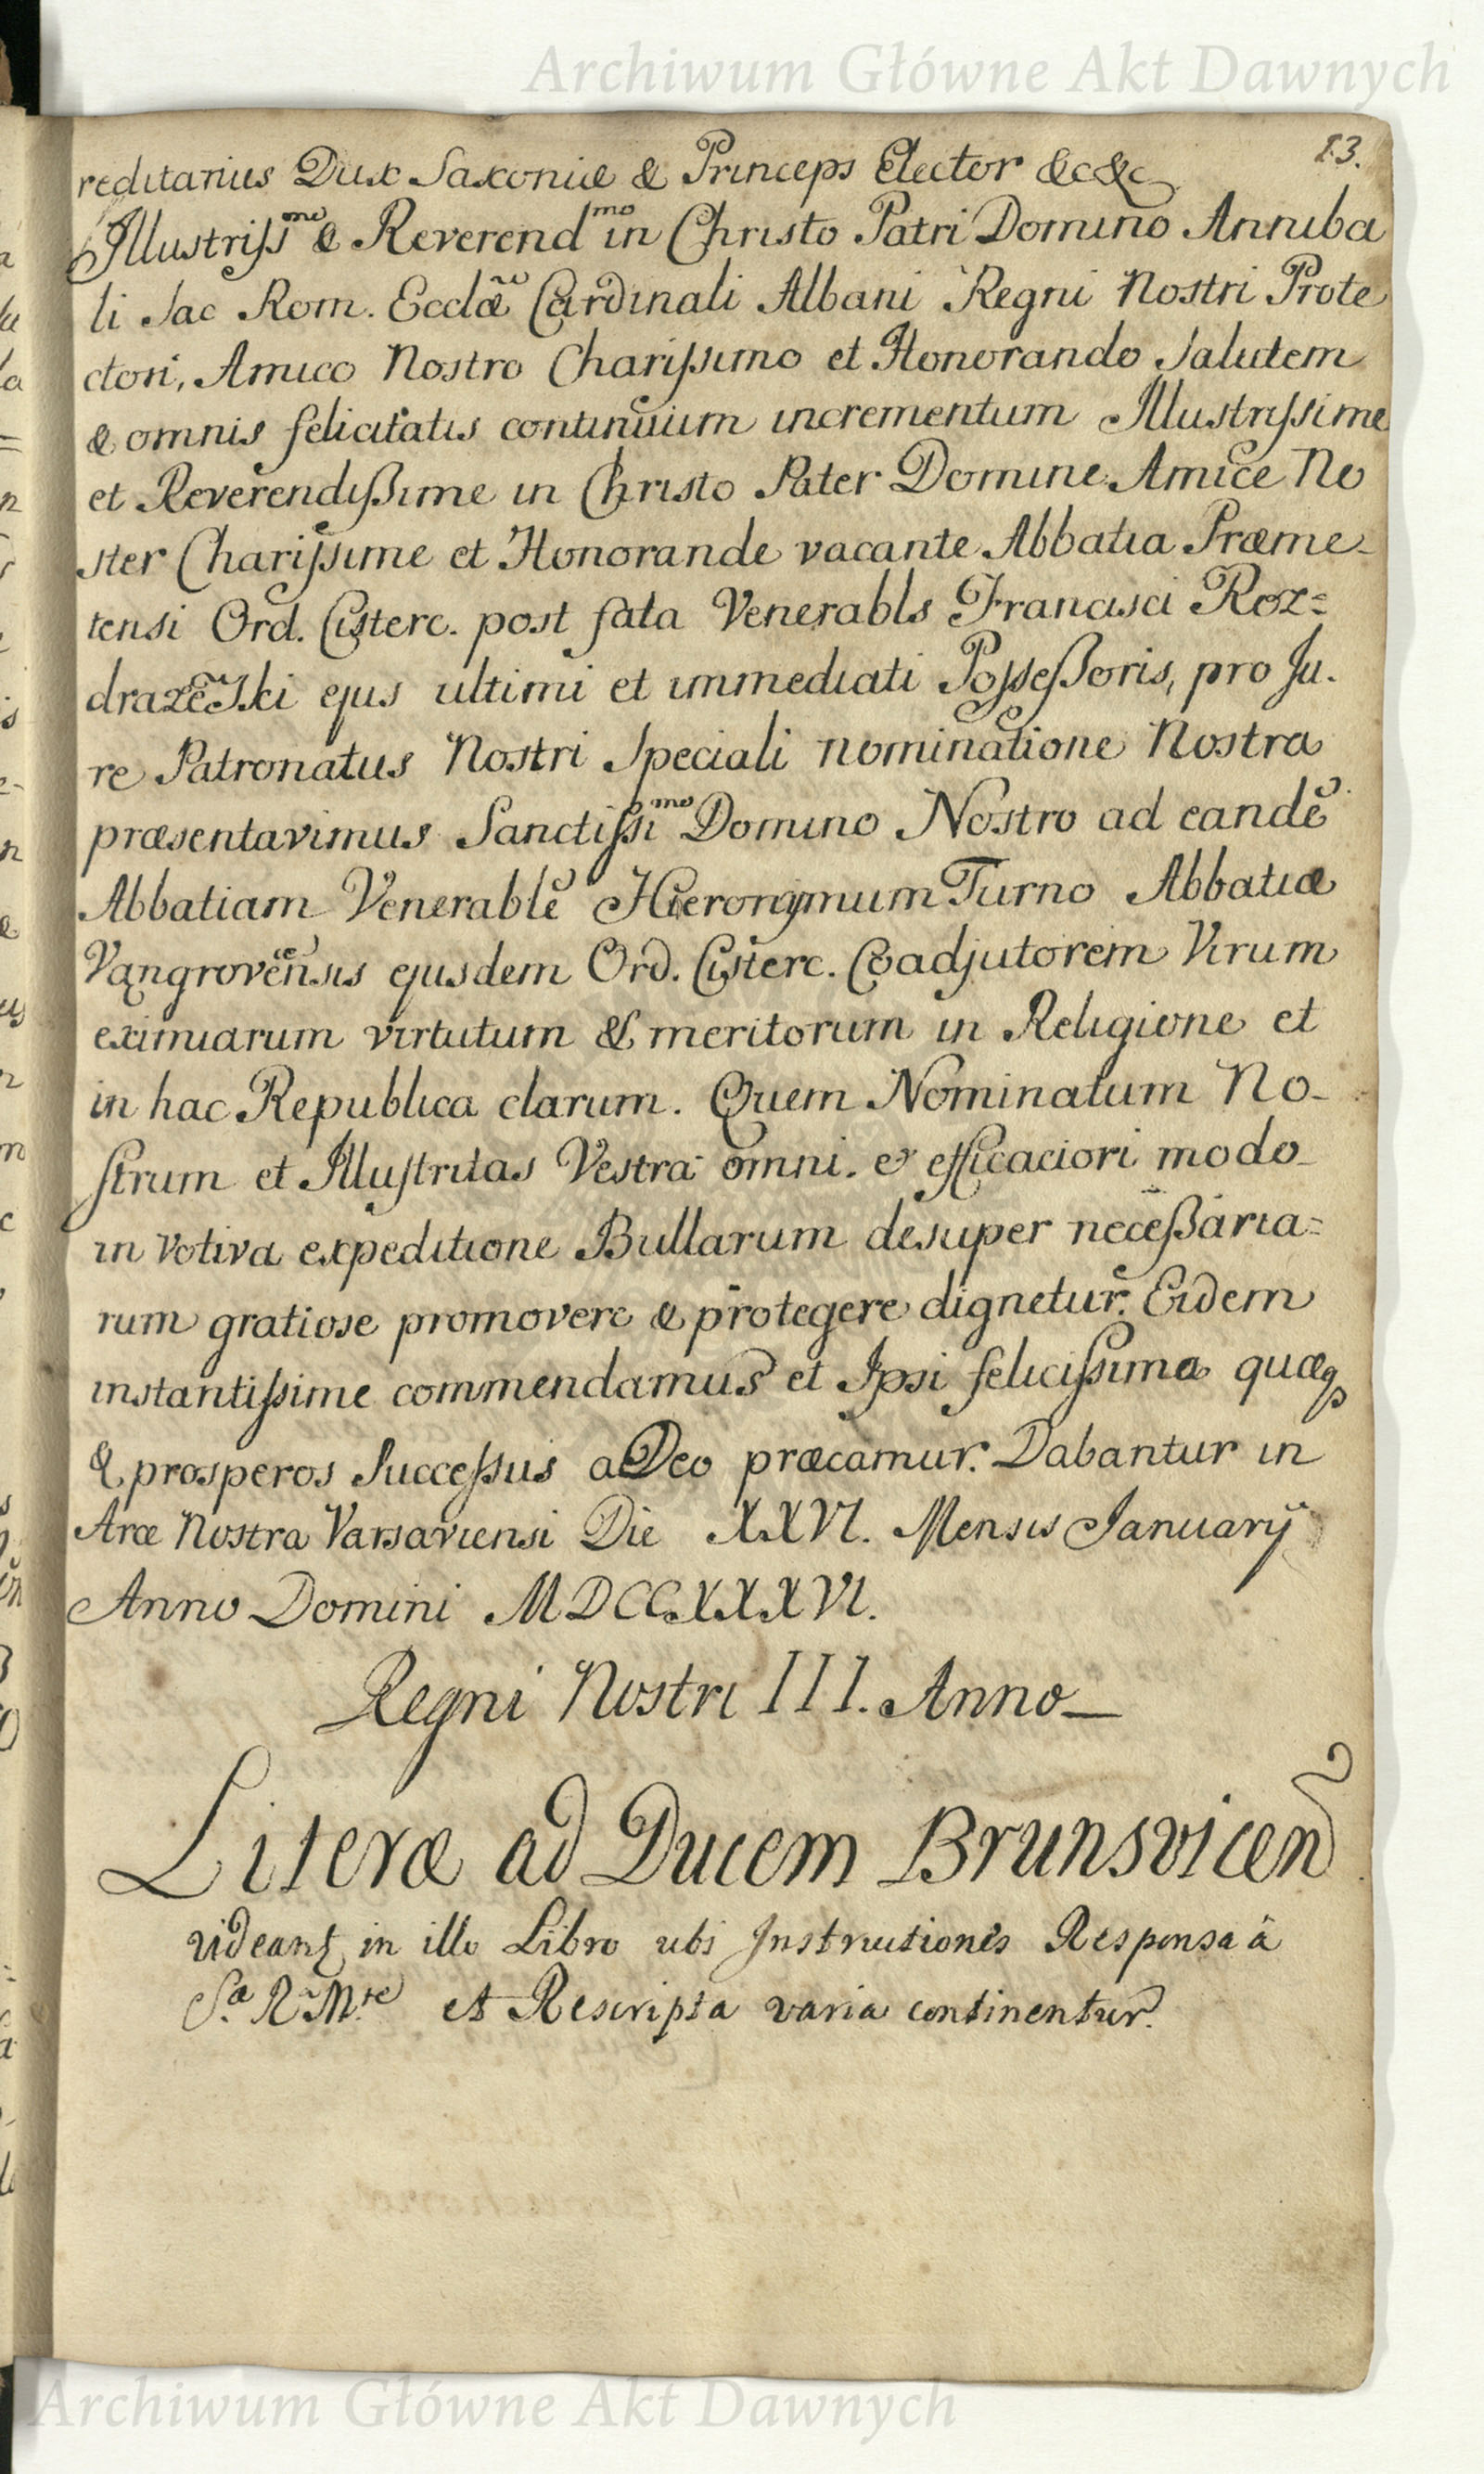 Archiwum Główne Akt Dawnych
13.
reditarius Dux Saxoniæ & Princeps Elector &c&c
Illustriss^mo & Reverend^mo in Christo Patri Domino Anniba
li Sac Rom. Ecclæ Cardinali Albani Regni Nostri Prote
ctori, Amico Nostro Charissimo et Honorando Salutem
& omnis felicitatis continuum incrementum Illustrissime
et Reverendißime in Christo Pater Domine Amice No
ster Charissime et Honorande vacante Abbatia Præme-
tensi Ord. Cisterc. post fata Venerabls Francisci Roz=
drazẽski ejus ultimi et immediati Posseßoris, pro Ju.
re Patronatus Nostri Speciali nominatione Nostra
præsentavimus Sanctissi^mo Domino Nostro ad eandẽ
Abbatiam Venerablẽ Hieronymum Turno Abbatiæ
Vangrovẽnsis ejusdem Ord. Cisterc. Coadjutorem Virum
eximiarum virtutum & meritorum in Religione et
in hac Republica clarum. Quem Nominatum No-
strum et Illustritas Vestra omni. & efficaciori modo
in votiva expeditione Bullarum desuper neceßaria=
rum gratiose promovere & protegere dignetur. Eidem
instantissime commendamus et Ipsi felicissima quæq
& prosperos Successus a Deo præcamur. Dabantur in
Arce Nostra Varsaviensi Die XXVI. Mensis Januarÿ
Anno Domini MDCCXXXVI.
Regni Nostri III. Anno
Literæ ad Ducem Brunsvicen
videant in illo Libro ubi Instructiones Responsa â
S.a R. M.te et Rescripta varia continentur.
Archiwum Główne Akt Dawnych